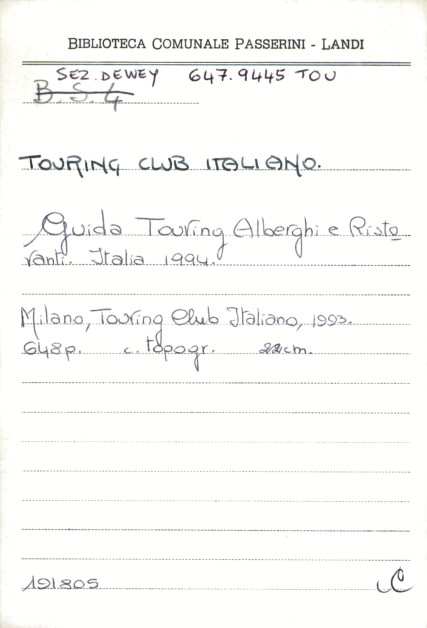 BIBLIOTECA COMUNALE PASSERINI - LANDI
SEZ. DEWEY 647.9445 TOU
B.S.4
TOURING CLUB ITALIANO.
Guida Touring Alberghi e Risto
ranti. Italia 1994.
Milano, Touring Club Italiano, 1993.
648p. c. topogr. 22cm.
191805